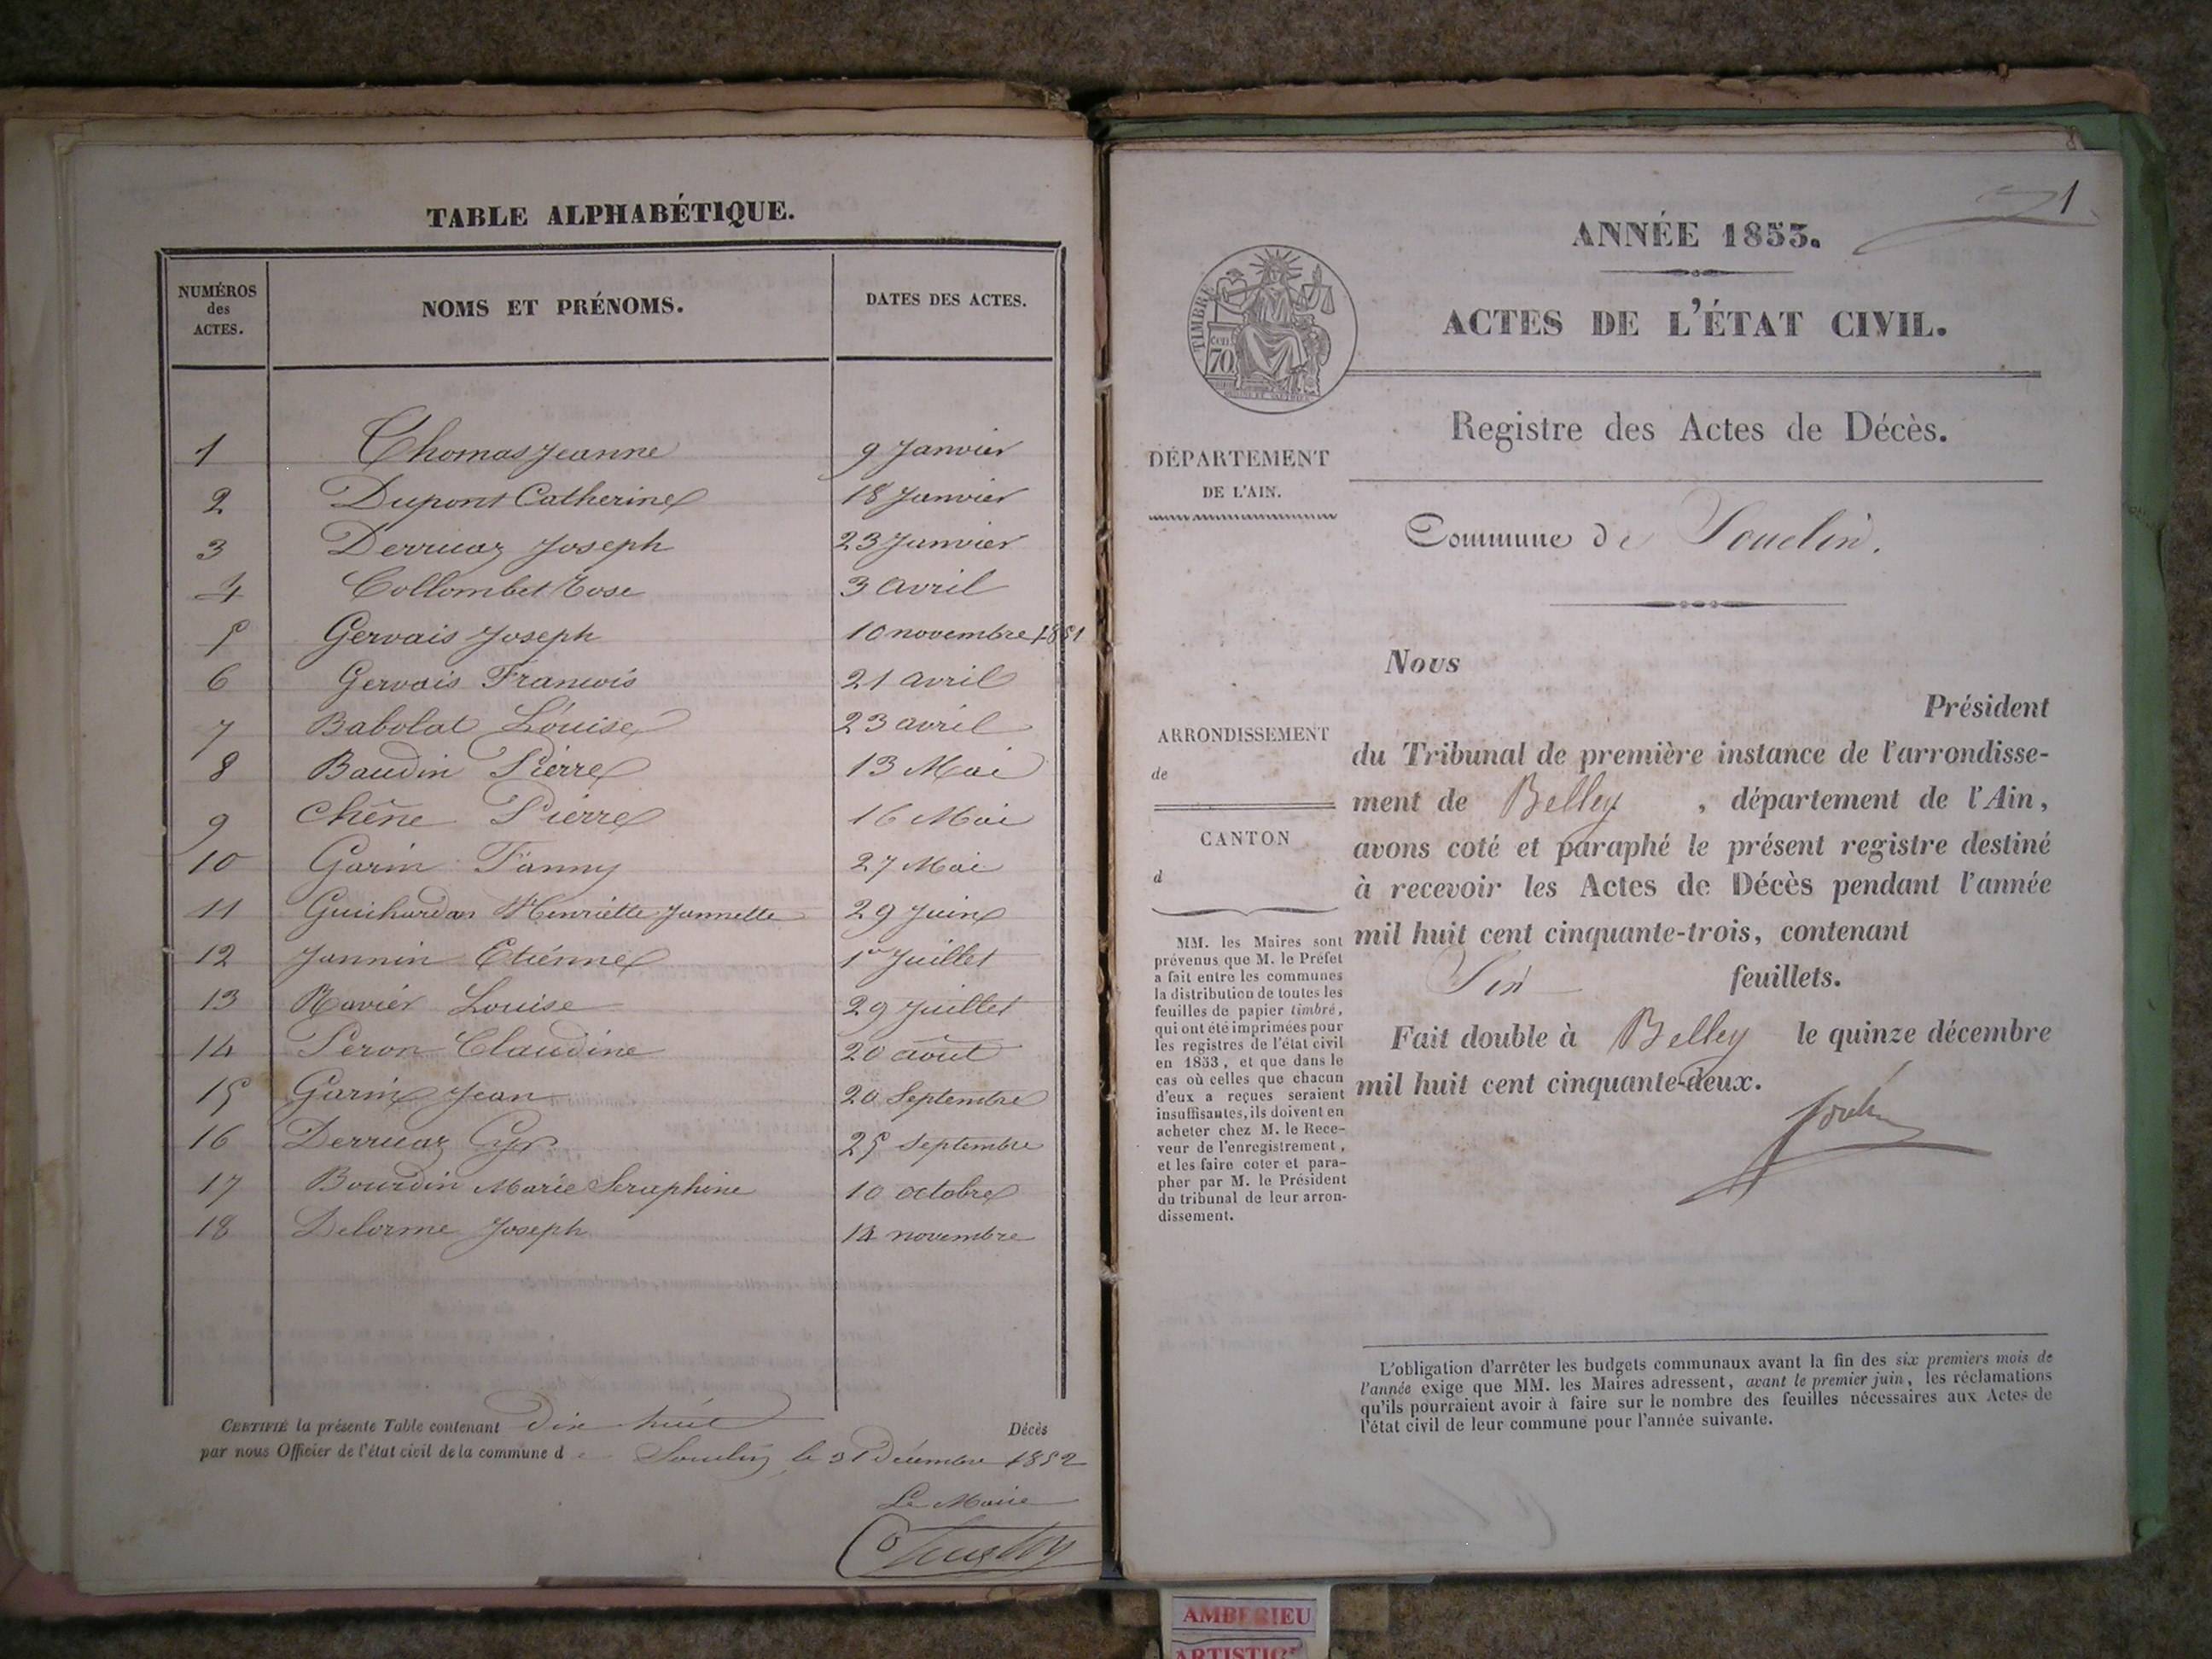 TABLE ALPHABÉTIQUE.
NUMÉROS
des
ACTES.
NOMS ET PRÉNOMS.
DATES DES ACTES.
1 Thomas Jeanne 9 Janvier
2 Dupont Catherine 18 Janvier
3 Derruaz Joseph 23 Janvier
4 Collombet Rose 3 avril
5 Gervais Joseph 10 novembre 1851
6 Gervais Francois 21 avril
7 Babolat Louise 23 avril
8 Baudin Pierre 13 Mai
9 Chêne Pierre 16 Mai
10 Garin Fanny 27 Mai
11 Guichardon Henriette Jannette 29 Juin
12 Jannin Etiénne 1er Juillet
13 Ravier Louise 29 Juillet
14 Peron Claudine 20 août
15 Garin Jean 20 Septembre
16 Derruaz Cyr 25 Septembre
17 Bourdin Marie Seraphine 10 octobre
18 Delorme Joseph 14 novembre
CERTIFIÉ la présente Table contenant Dix huit Décès
par nous Officier de l'état civil de la commune de Souclin le 31 Décembre 1852
Le Maire
1
ANNÉE 1853.
ACTES DE L'ÉTAT CIVIL.
TIMBRE
70
cen
Registre des Actes de Décès.
DÉPARTEMENT
DE L'AIN.
Commune de Souclin.
Nous
Président
du Tribunal de première instance de l'arrondisse-
ment de Belley, département de l'Ain,
avons coté et paraphé le présent registre destiné
à recevoir les Actes de Décès pendant l'année
mil huit cent cinquante-trois, contenant
Six feuillets.
Fait double à Belley le quinze décembre
mil huit cent cinquante-deux.
ARRONDISSEMENT
de
CANTON
d
MM. les Maires sont
prévenus que M. le Préfet
a fait entre les communes
la distribution de toutes les
feuilles de papier timbré,
qui ont été imprimées pour
les registres de l'état civil
en 1853, et que dans le
cas où celles que chacun
d'eux a reçues seraient
insuffisantes, ils doivent en
acheter chez M. le Rece-
veur de l'enregistrement,
et les faire coter et para-
pher par M. le Président
du tribunal de leur arron-
dissement.
L'obligation d'arrêter les budgets communaux avant la fin des six premiers mois de
l'année exige que MM. les Maires adressent, avant le premier juin, les réclamations
qu'ils pourraient avoir à faire sur le nombre des feuilles nécessaires aux Actes de
l'état civil de leur commune pour l'année suivante.
AMBERIEU